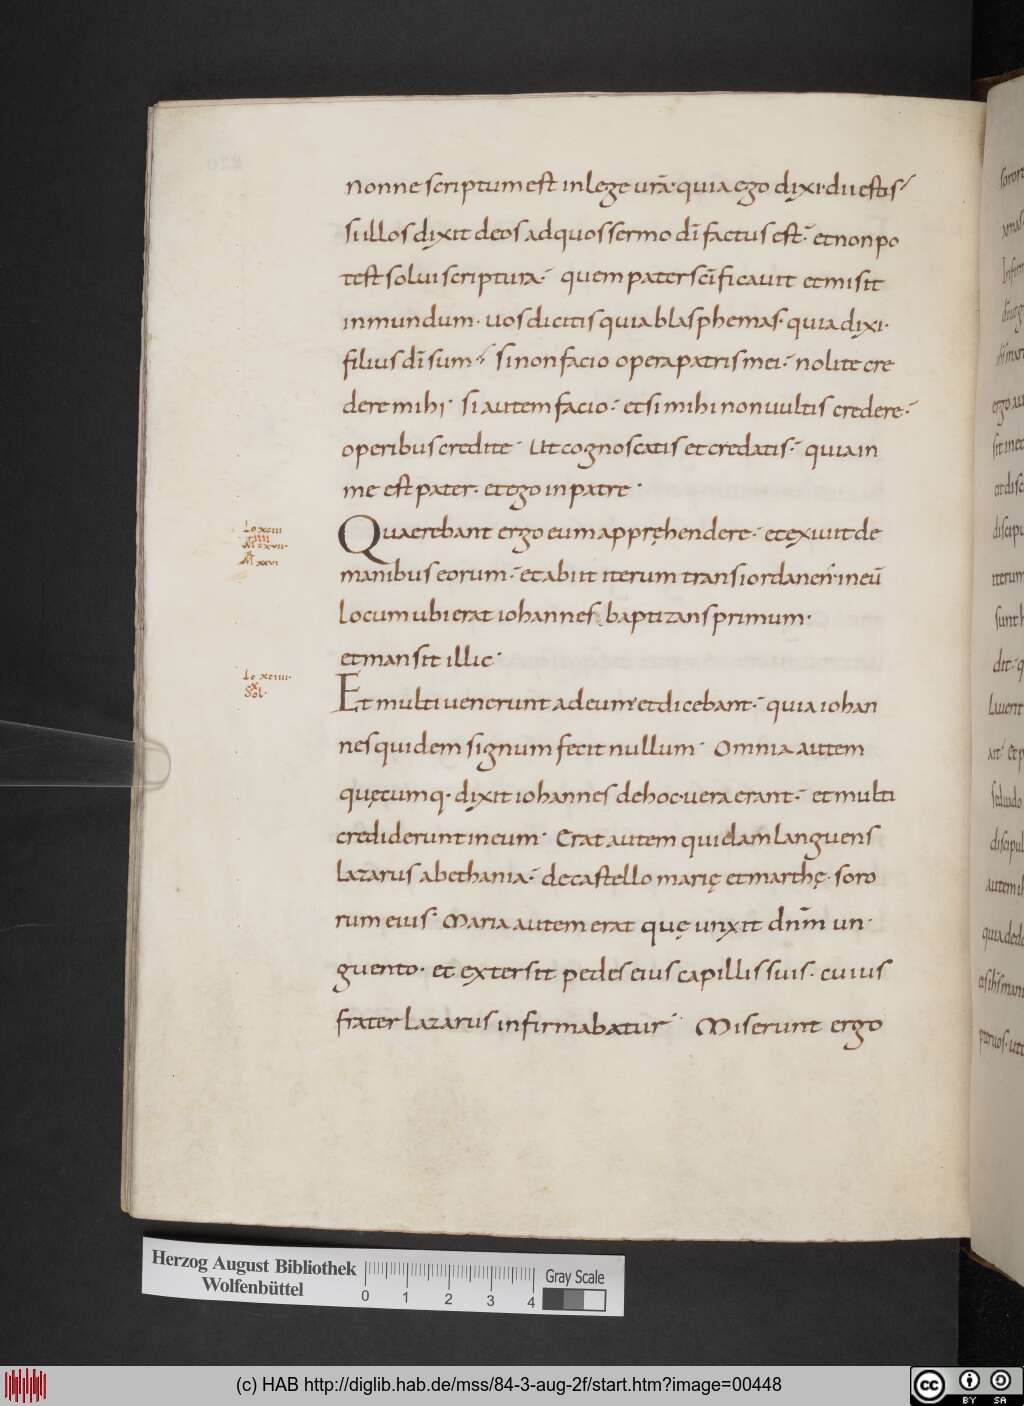 nonne scriptum est in lege urā· quia ego dixi· dii estis
si illos dixit deos ad quos sermo dī factus est·̄ et non po
test solui scriptura·̄ quem pater scīficauit et misit
in mundum· uos dicitis quia blasphemas· quia dixi·
filius dī sum· si non facio opera patris mei·̄ nolite cre
dere mihi· si autem facio·̄ et si mihi non uultis credere·̄
operibus credite· Ut cognoscatis et credatis·̄ quia in
me est pater· et ego in patre·
Quaerebant ergo eum appręhendere·̄ et exiuit de
Io xciii
IIII
M
M xxvi
manibus eorum·̄ et abiit iterum trans iordanen· in eū
locum ubi erat iohannes baptizans primum·
et mansit illic·
Io xciiii·
X
Sol·
Et multi uenerunt ad eum et dicebant·̄ quia iohan
nes quidem signum fecit nullum· Omnia autem
quęcumq· dixit iohannes de hoc· uera erant·̄ et multi
crediderunt in eum· Erat autem quidam languens
lazarus a bethania·̄ de castello marię et marthę· soro
rum eius· Maria autem erat quę unxit dnm̄ un·
guento· et extersit pedes eius capillis suis· cuius
frater lazarus infirmabatur· Miserunt ergo
Herzog August Bibliothek
Wolfenbüttel
0 1 2 3 4
Gray Scale
(c) HAB http://diglib.hab.de/mss/84-3-aug-2f/start.htm?image=00448
cc BY SA